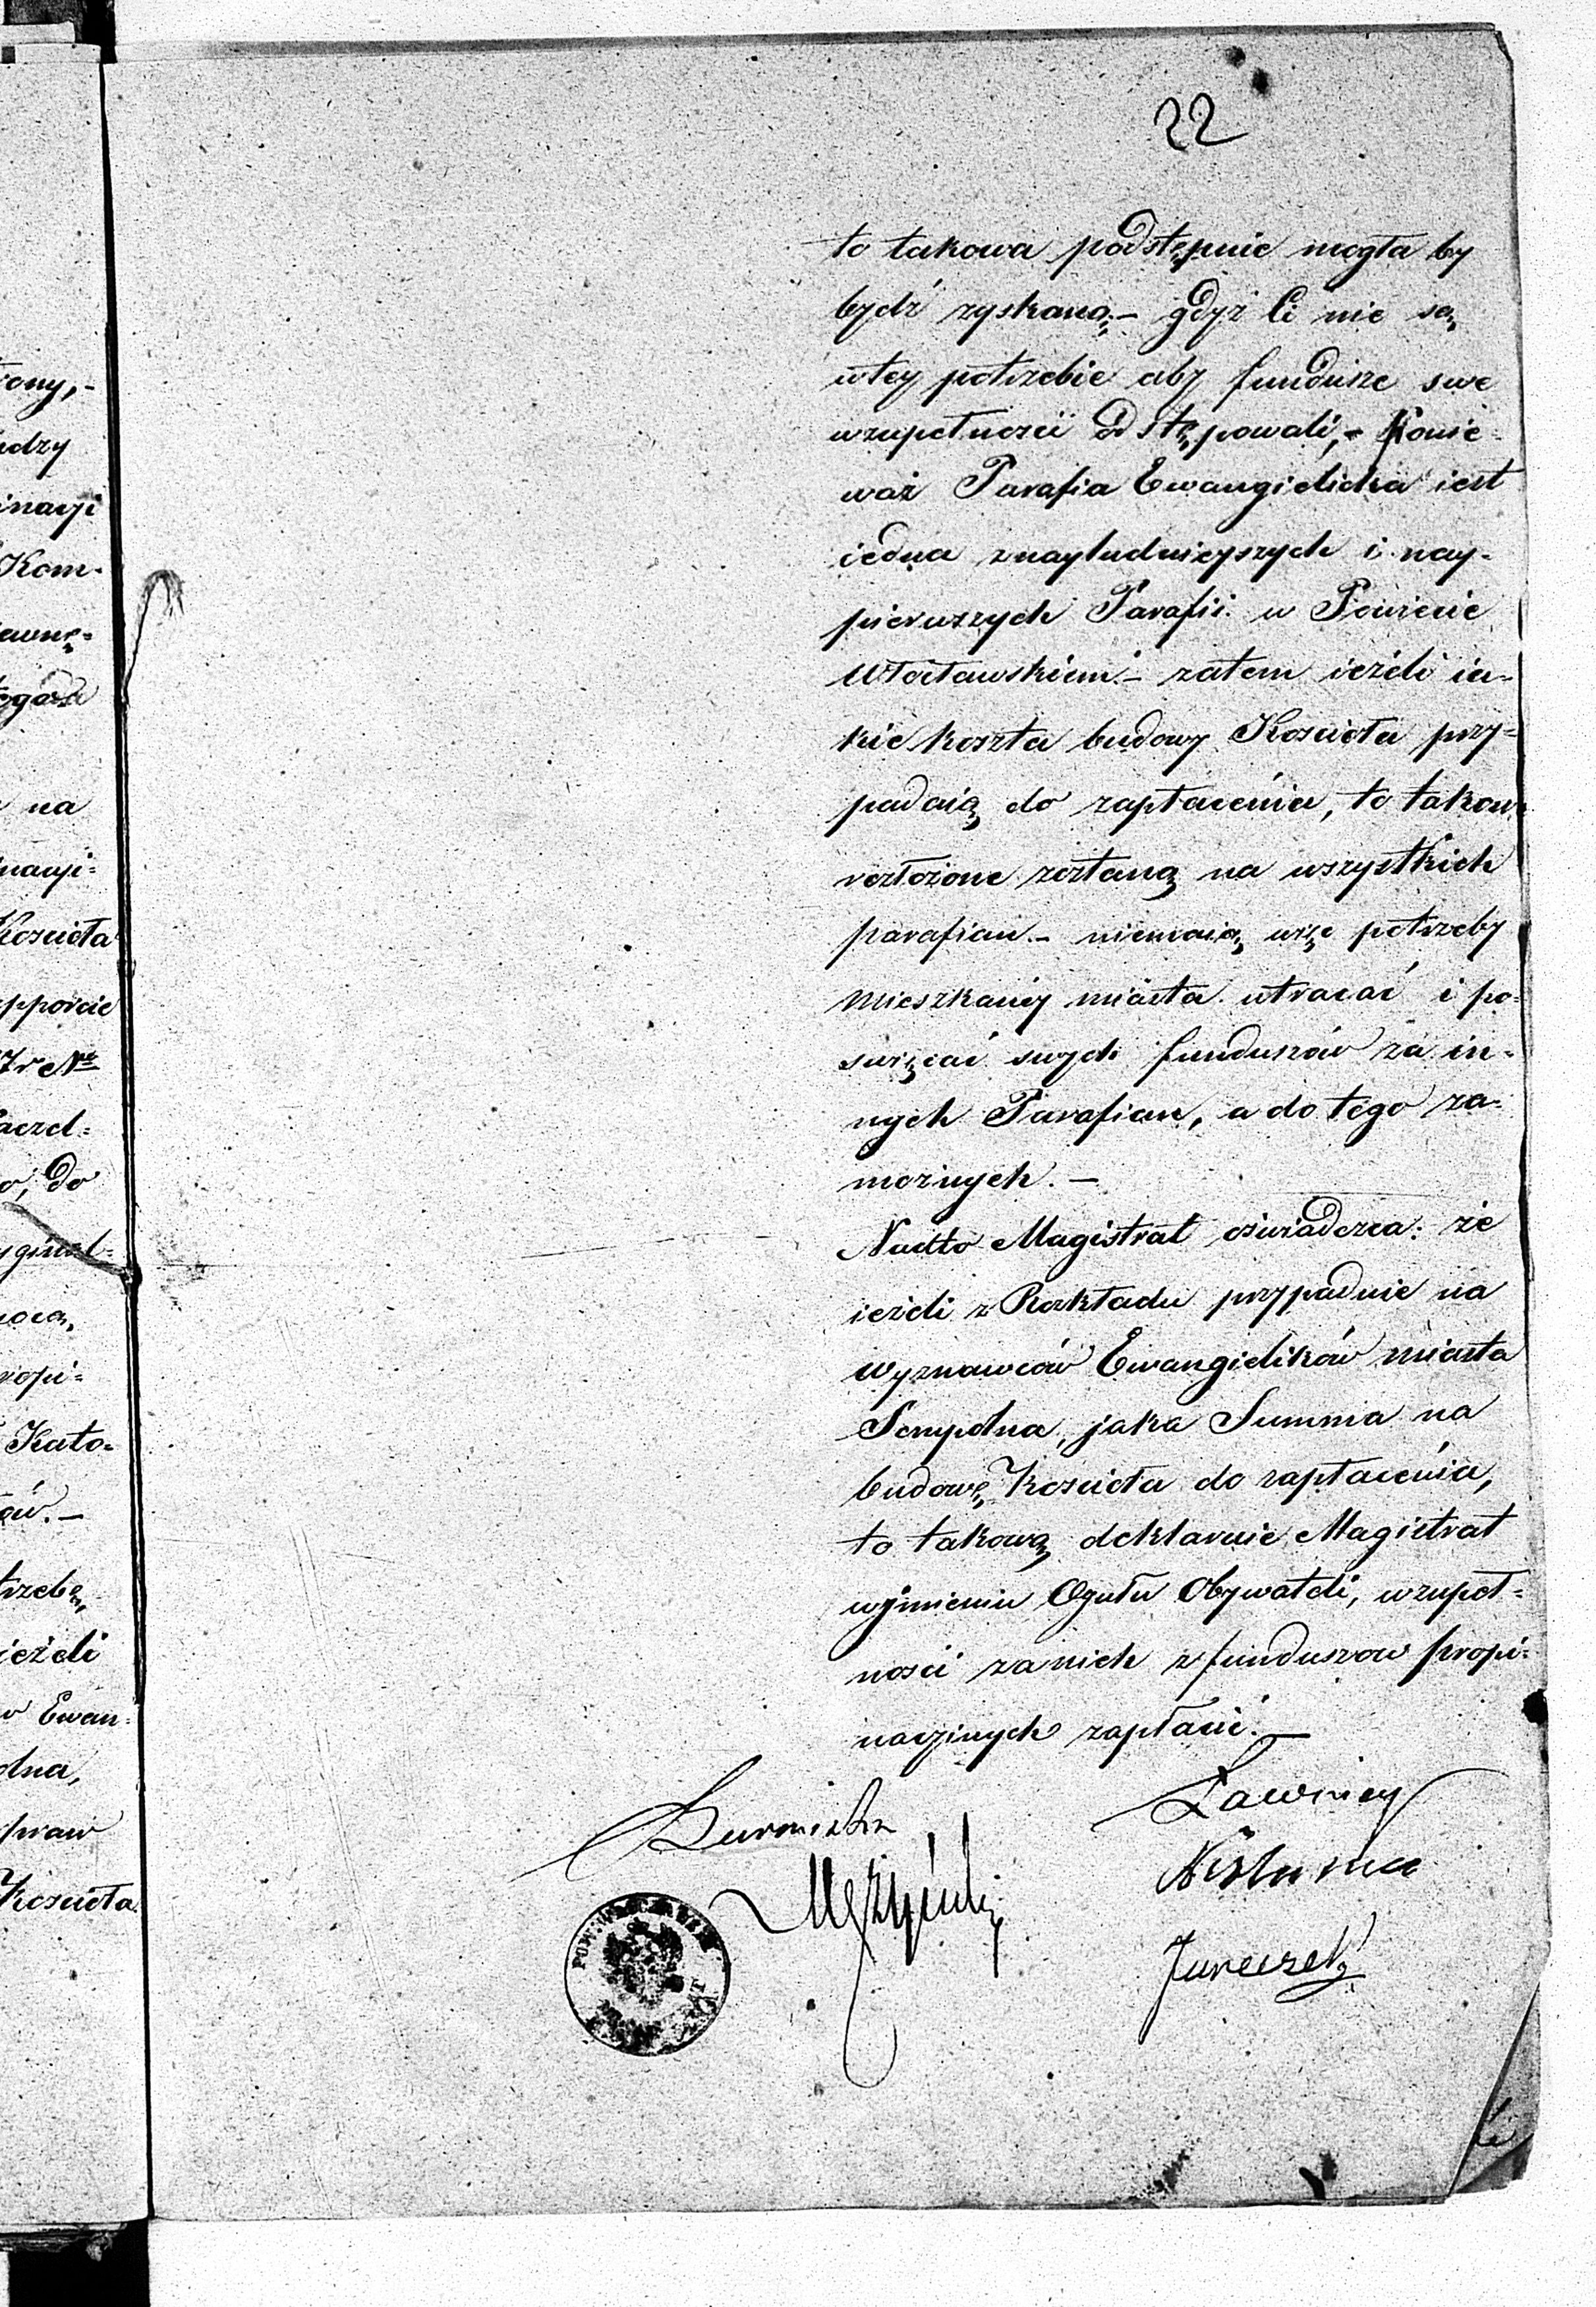 22
to takowa podstępnie mogła by
bydź zyskaną.- gdyż Ci nie są
wtey potrzebie aby fundusze swe
wzupełności odstępowali,- Ponie=
waż Parafia Ewangielicka iest
iedna znayludnieyszych i nay-
pierwszych Parafii w Powiecie
Włocławskiem- zatem ieżeli ia-
kie koszta budowy Kościoła przy=
padaią do zapłacenia, to takow
rozłożone zostaną na wszystkich
parafian.- niemaią więc potrzeby
Mieszkańcy miasta utracać i po=
swięcać swych funduszów za in-
nych Parafian, a do tego za-
możnych.-
Nadto Magistrat oświadcza: że
ieżeli z Rozkładu przypadnie na
Wyznawców Ewangielików miasta
Sempolna, jaka Summa na
budowę Kościoła do zapłacenia,
to takową deklaruie Magistrat
wjmieniu Ogułu Obywateli, wzupeł=
ności zanich z funduszow propi=
nacyinych zapłacić.-
Burmistrz
Ławnicy
POW.
ony,-
ędzy
inacyi
Kom-
na
nacyi=
Kościoła
apporcie
aczel=
do
yginal=
ropi=
Kato=
ów.-
trzebę,
ieżeli
w Ewan=
olna,
praw
Kościoła